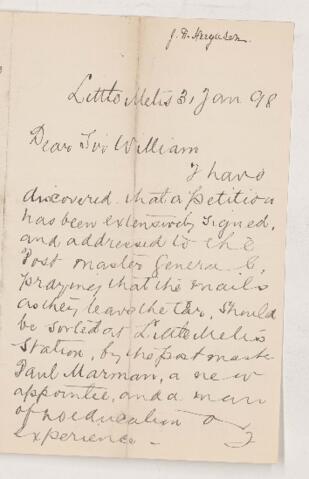 J. H. Ferguson
Little Metis 31 Jan 98
Dear Sir William
I have
discovered that a petition
has been extensively signed,
and addressed to the
Post master General,
praying that the mails
as they leave the Car, should
be sorted at Little Metis
Station, by the post master
Paul Marman, a new
appointee, and a man
of no education or
experience -